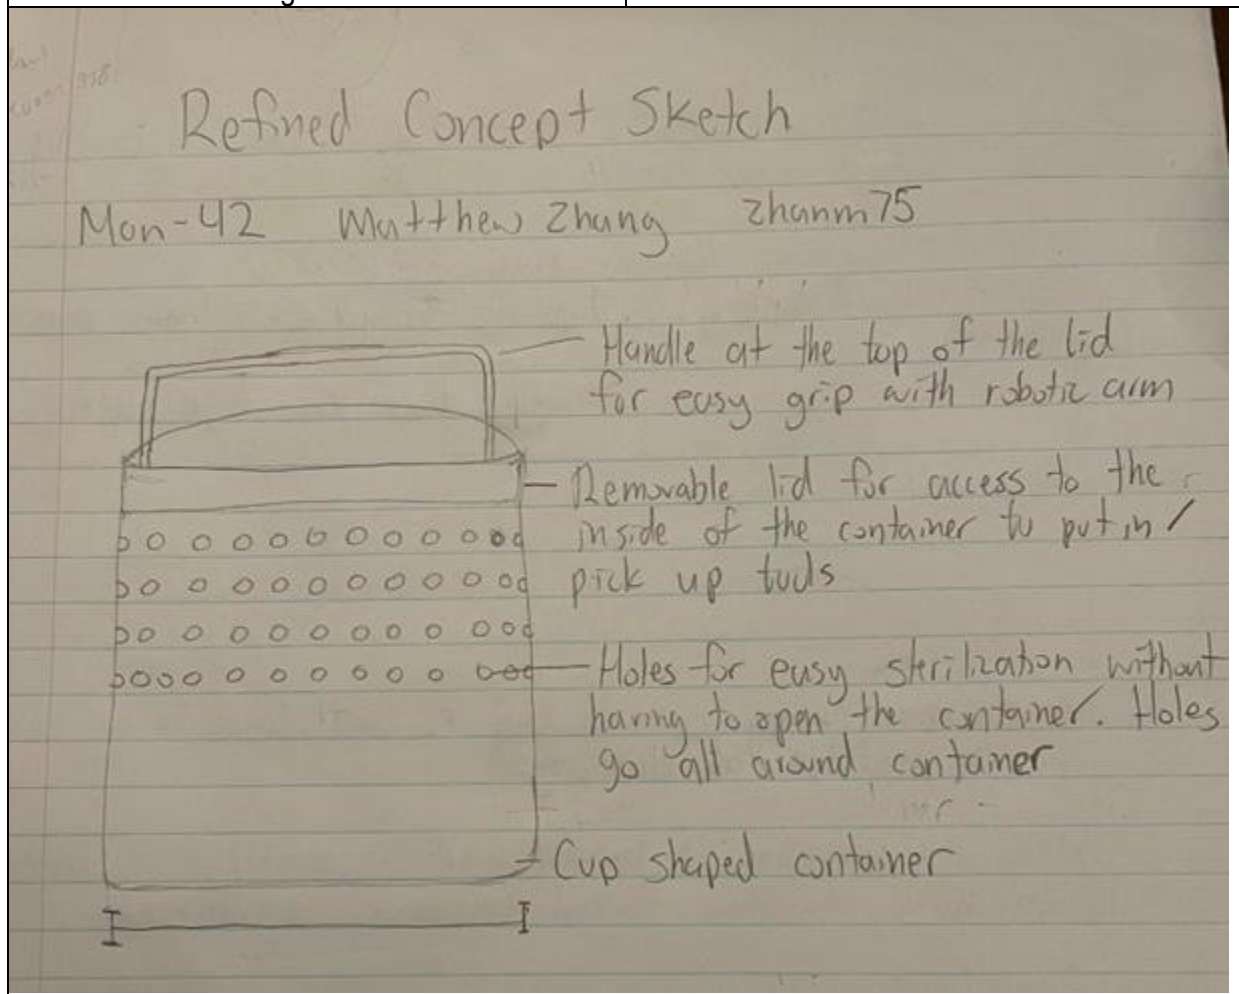 Refined Concept Sketch
Mon-42 Matthew Zhang zhanm75
Handle at the top of the lid
for easy grip with robotic arm
Removable lid for access to the
inside of the container to put in /
pick up tools
Holes for easy sterilization without
having to open the container. Holes
go all around container
Cup shaped container